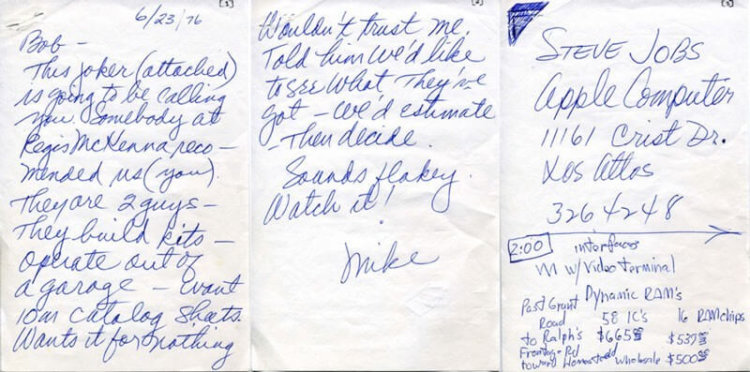 [1]
6/23/76
Bob –
This joker (attached)
is going to be calling
you. Somebody at
Regis McKenna reco –
mended us (you).
They are 2 guys –
They build kits –
operate out of
a garage – want
10M catalog sheets.
Wants it for nothing
[2]
Wouldn't trust me.
Told him we'd like
to see what they've
got – we'd estimate
– Then decide.
Sounds flakey.
Watch it!
Mike
STEVE JOBS
Apple Computer
11161 Crist Dr.
Los Altos
326 4248
2:00
interfaces
w/ Video Terminal
Dynamic RAM's
58 IC's
16 RAM chips
Past Grant
Road
to Ralph's
Frontage Rd
toward Homestead
$665
$537
wholesale $500